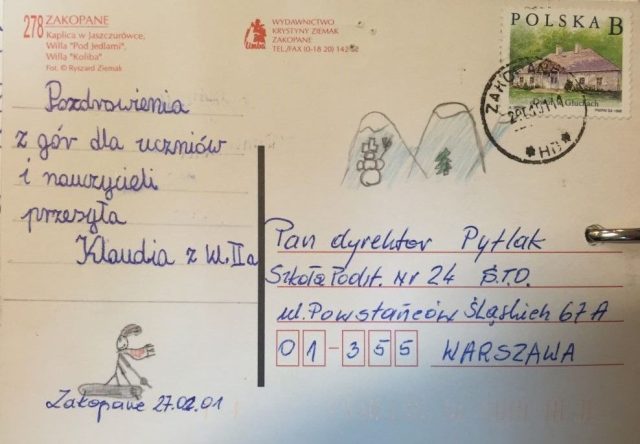 278 ZAKOPANE
Kaplica w Jaszczurówce,
Willa "Pod Jedlami",
Willa "Koliba"
Fot. © Ryszard Ziemak
WYDAWNICTWO
KRYSTYNY ZIEMAK
ZAKOPANE
TEL./FAX (0-18 20)
POLSKA B
Pozdrowienia
z gór dla uczniów
i nauczycieli
przesyła
Klaudia z kl. IIa
Zakopane 27.02.01
Pan dyrektor Pytlak
Szkoła Podst. Nr 24 S.T.O.
ul. Powstańców Śląskich 67A
01-355 WARSZAWA